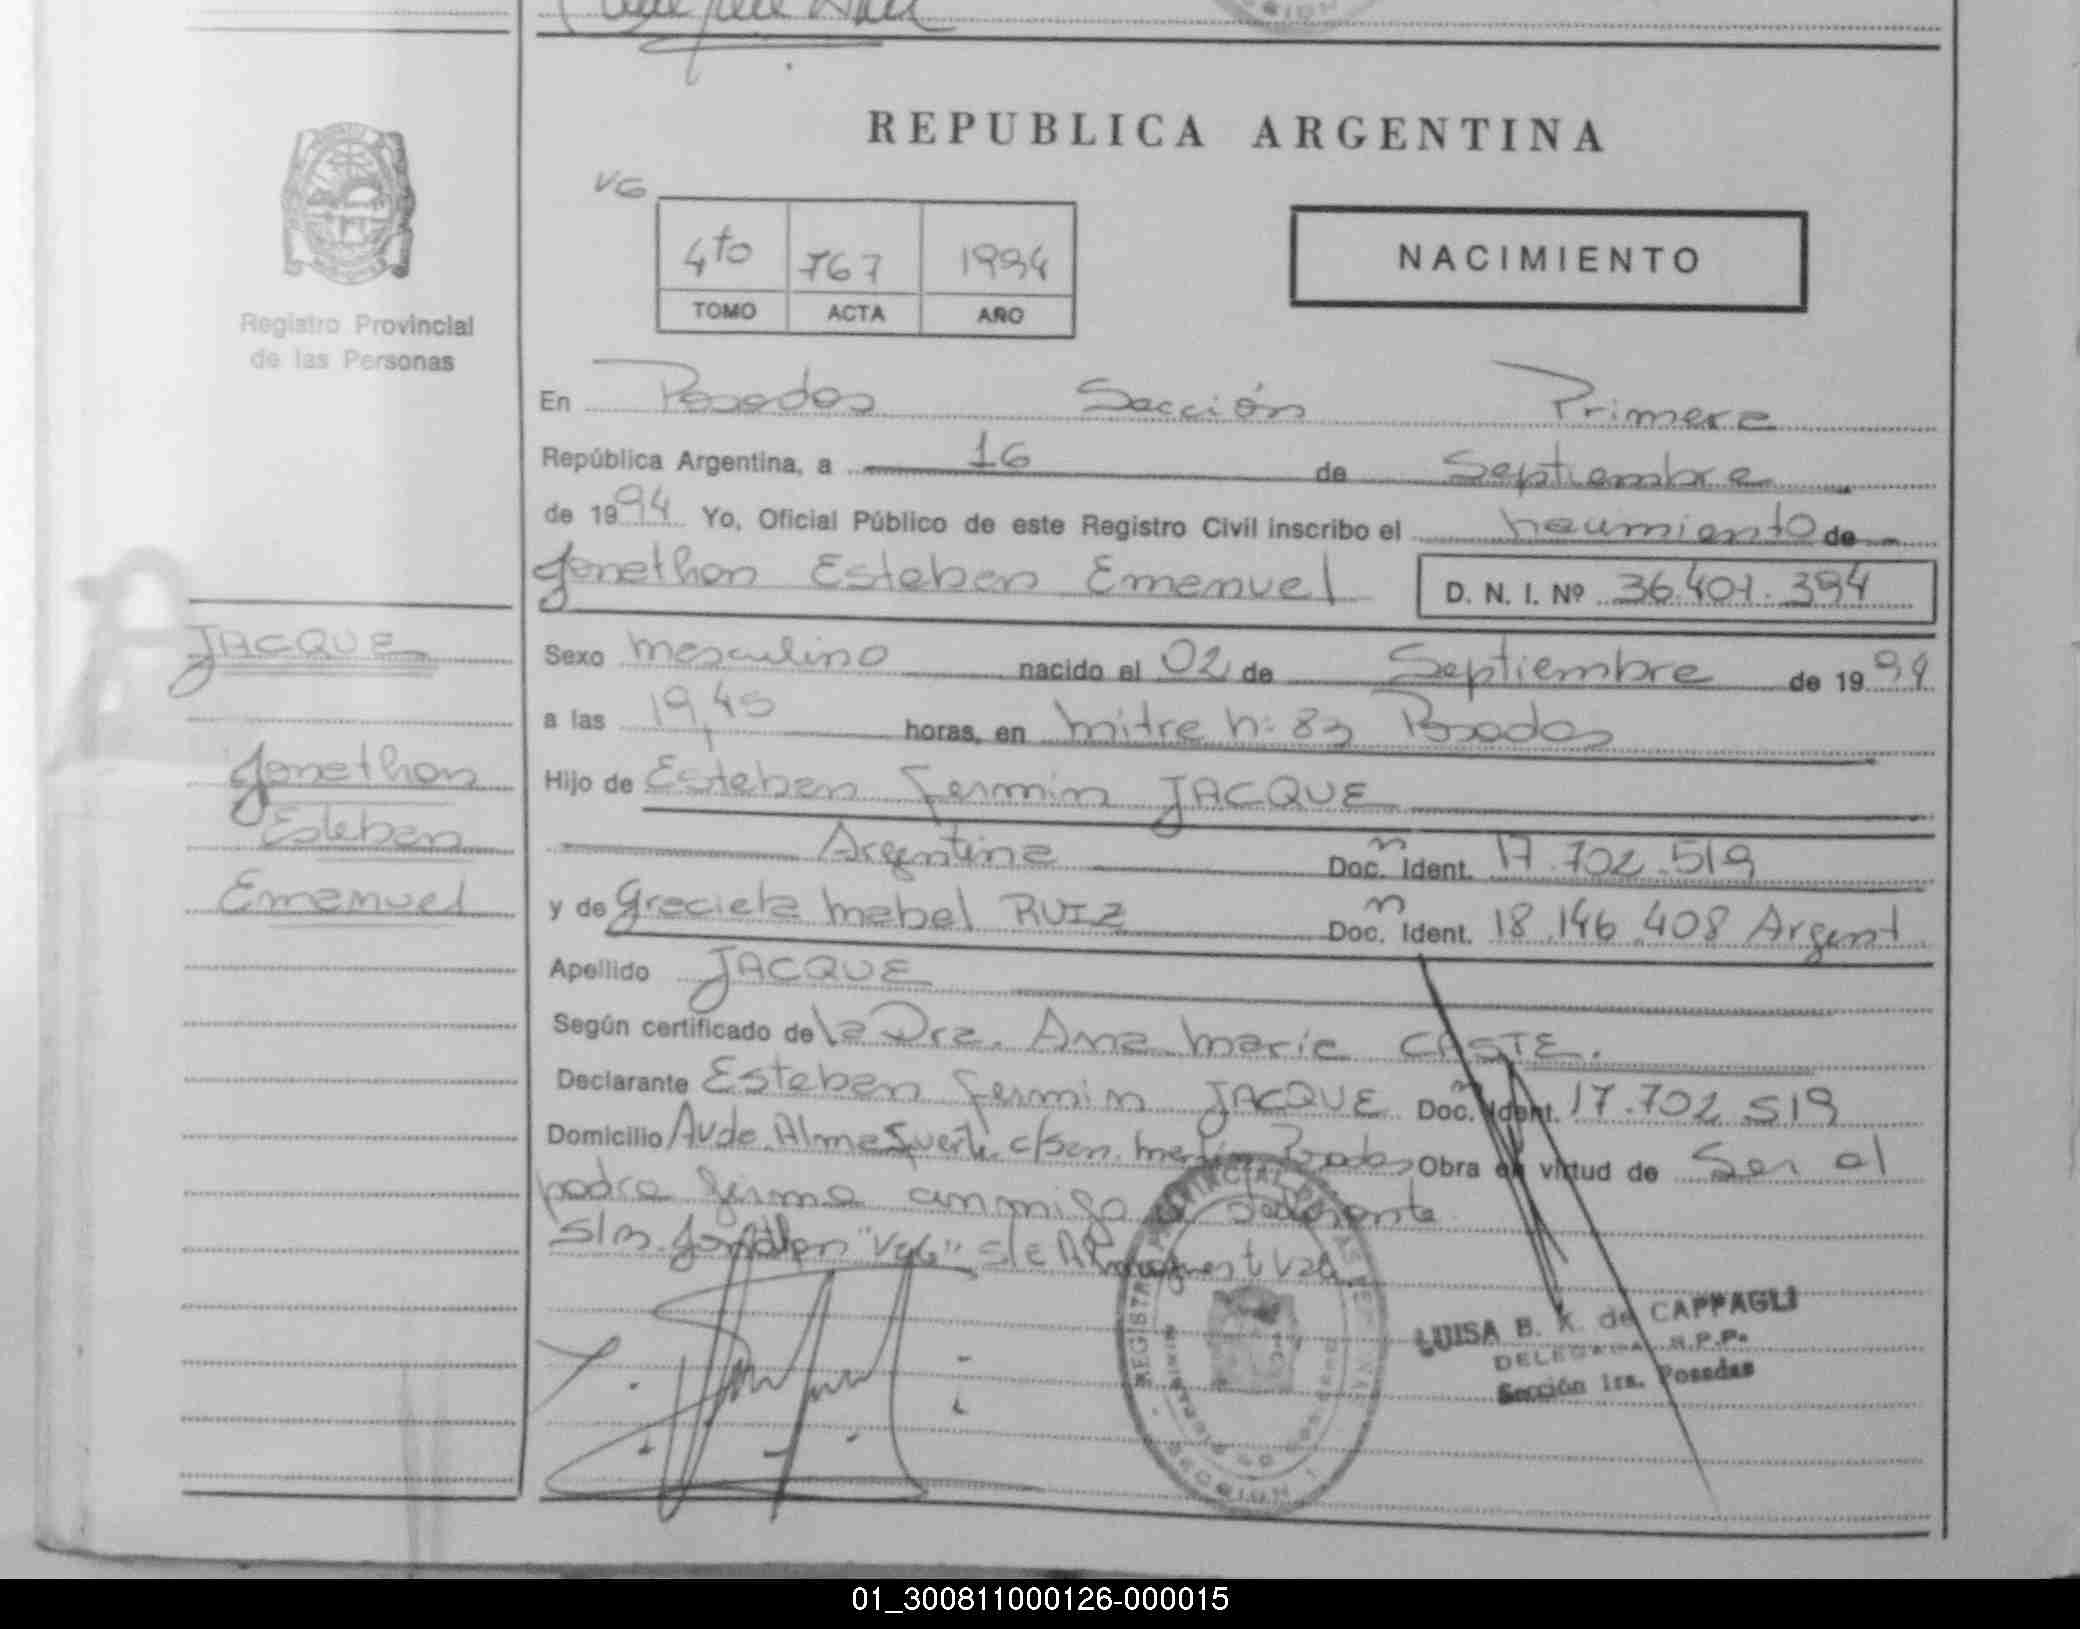 REPUBLICA ARGENTINA
VG
4to 767 1994
TOMO ACTA AÑO
NACIMIENTO
Registro Provincial
de las Personas
En Posadas Sección Primera
República Argentina, a 16 de Septiembre
de 1994 Yo, Oficial Público de este Registro Civil inscribo el nacimiento de
Jonathan Esteban Emanuel D. N. I. Nº 36.401.394
JACQUE
Jonathan
Esteban
Emanuel
Sexo masculino nacido el 02 de Septiembre de 1994
a las 19,45 horas, en mitre n: 83 Posadas
Hijo de Esteban Fermin JACQUE
Argentina Doc. Ident. 17.702.519
y de Graciela Mabel RUIZ Doc. Ident. 18.146.408 Argent
Apellido JACQUE
Según certificado de la Dra. Ana Maria CASTE.
Declarante Esteban Fermin JACQUE Doc. Ident. 17.702.519
Domicilio Avda. c/San Martin Posadas Obra en virtud de Ser el
padre firma conmigo
S/m. Jonathan "VG" S/E
REGISTRO PROVINCIAL DE LAS PERSONAS
LUISA B. K. de CAPPAGLI
DELEGADA R.P.P.
Sección 1ra. Posadas
01_300811000126-000015